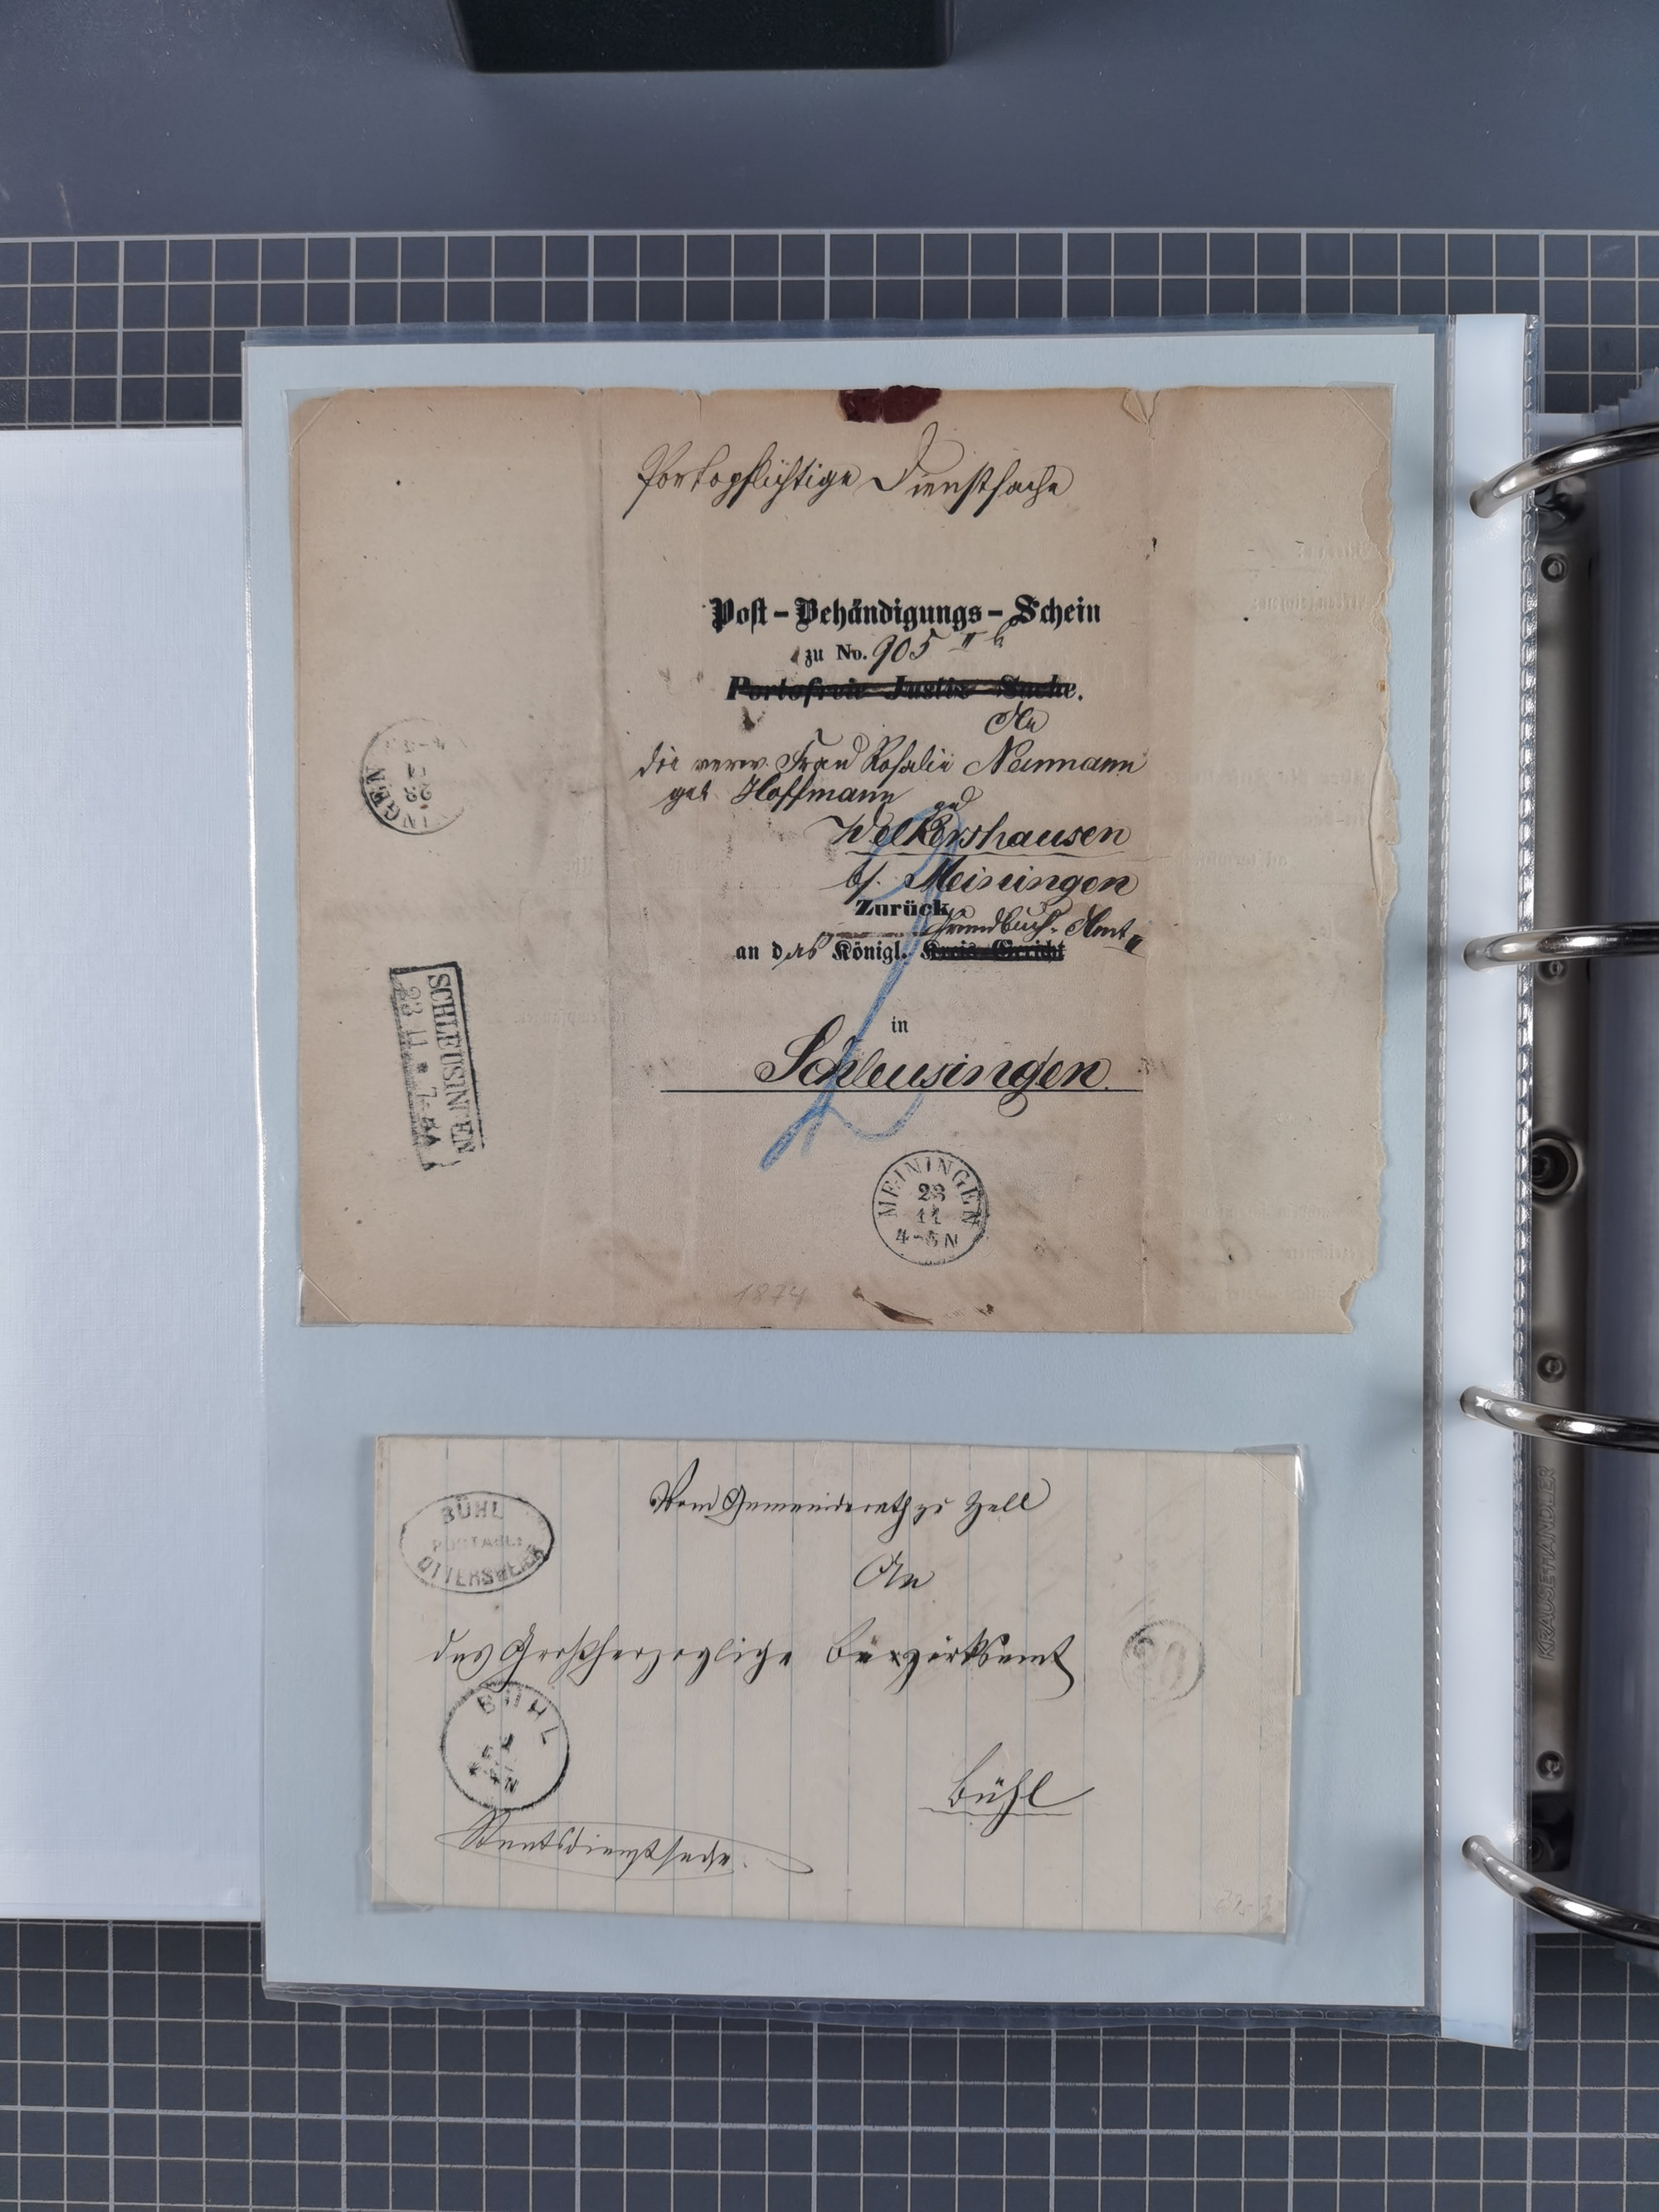 Portopflichtige Dienstsache
Post-Behändigungs-Schein
zu No. 905 II b
Portofreie Justiz-Sache.
An
die verw. Frau Rosalie Neumann
geb. Hoffmann
zu
Welkershausen
b/. Meiningen
Zurück
Grundbuch-Amt II
an das Königl. Kreis-Gericht
in
Schleusingen
INGEN
28
SCHLEUSINGEN
23 11 * 7-8
MEININGEN
23
11
4-5 N
1874
Vom Gemeinderath zu Zell
BÜHL
POSTABL:
OTTERSWEIER
An
das Großherzogliche Bezirksamt
20
BÜHL
Bühl
Staatsdienstsache.
KRAUSE MÄNDLER